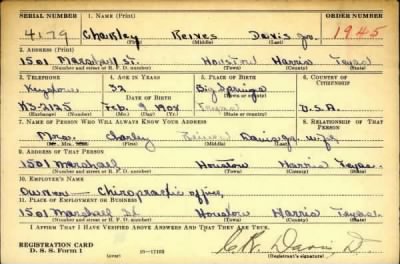 SERIAL NUMBER 1. NAME (Print) ORDER NUMBER
4179 Charley Reives Davis Jr. 1945
(First) (Middle) (Last)
2. ADDRESS (Print)
1501 Marshall St. Houston Harris Texas
(Number and street or R. F. D. number) (Town) (County) (State)
3. TELEPHONE 4. AGE IN YEARS 5. PLACE OF BIRTH 6. COUNTRY OF CITIZENSHIP
Keystone 32 Big Springs
DATE OF BIRTH
K3-2125 Feb. 9 1908 Texas U.S.A.
(Exchange) (Number) (Mo.) (Day) (Yr.) (State or country)
7. NAME OF PERSON WHO WILL ALWAYS KNOW YOUR ADDRESS 8. RELATIONSHIP OF THAT PERSON
Mrs. Charley Reives Davis Jr. wife
(Mr., Mrs., Miss) (First) (Middle) (Last)
9. ADDRESS OF THAT PERSON
1501 Marshall Houston Harris Texas
(Number and street or R. F. D. number) (Town) (County) (State)
10. EMPLOYER'S NAME
Owner - Chiropractic office
11. PLACE OF EMPLOYMENT OR BUSINESS
1501 Marshall St Houston Harris Texas
(Number and street or R. F. D. number) (Town) (County) (State)
I AFFIRM THAT I HAVE VERIFIED ABOVE ANSWERS AND THAT THEY ARE TRUE.
REGISTRATION CARD
D. S. S. Form 1 (over) 16-17105 C.R. Davis Jr.
(Registrant's signature)